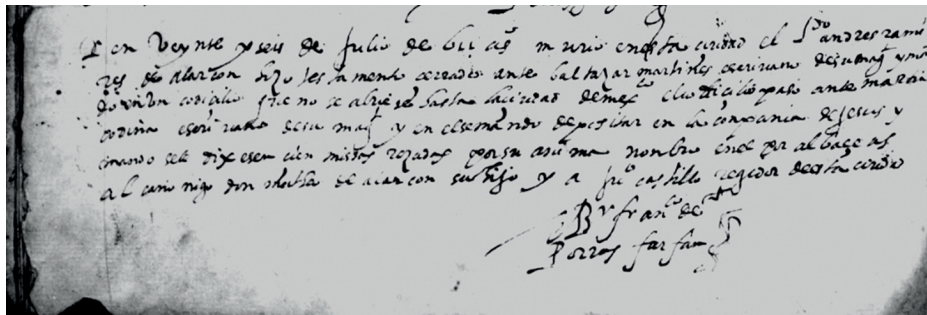 En Veynte y seis de Julio de murio en esta ciudad el Ldo andres rami
res de alarcon hizo testamento cerrado ante baltazar martines escrivano de su mag y
do en un codicilio que no se abriese hasta la ciudad de mexco el codicilio paso ante
escrivano de su mag y en el se mando depositar en la conpania de Jesus y
mando se le dixesen cien missas rezadas por su anima nombro en el por albaceas
al canonigo don de alarcon su hijo y a juo castillo regidor desta ciudad
Br franco de
Porras farfan